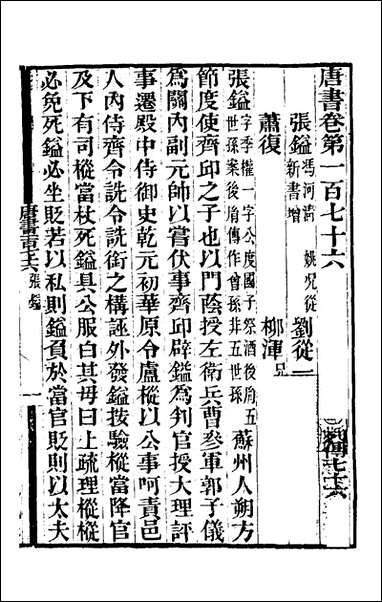 唐書卷第一百七十六 列傳七十六
張鎰 馮河清 姚況從新書增 劉從一
蕭復 柳渾
張鎰 字季權一字公度國子祭酒後胤五世孫案後胤傳作曾孫非五世孫 蘇州人朔方
節度使齊邱之子也以門蔭授左衛兵曹參軍郭子儀
爲關內副元帥以嘗伏事齊邱辟鎰爲判官授大理評
事遷殿中侍御史乾元初華原令盧樅以公事呵責邑
人內侍齊令詵令詵銜之構誣外發鎰按驗樅當降官
及下有司樅當杖死鎰具公服白其母曰上疏理樅樅
必免死鎰必坐貶若以私則鎰負於當官貶則以太夫
張鎰
一